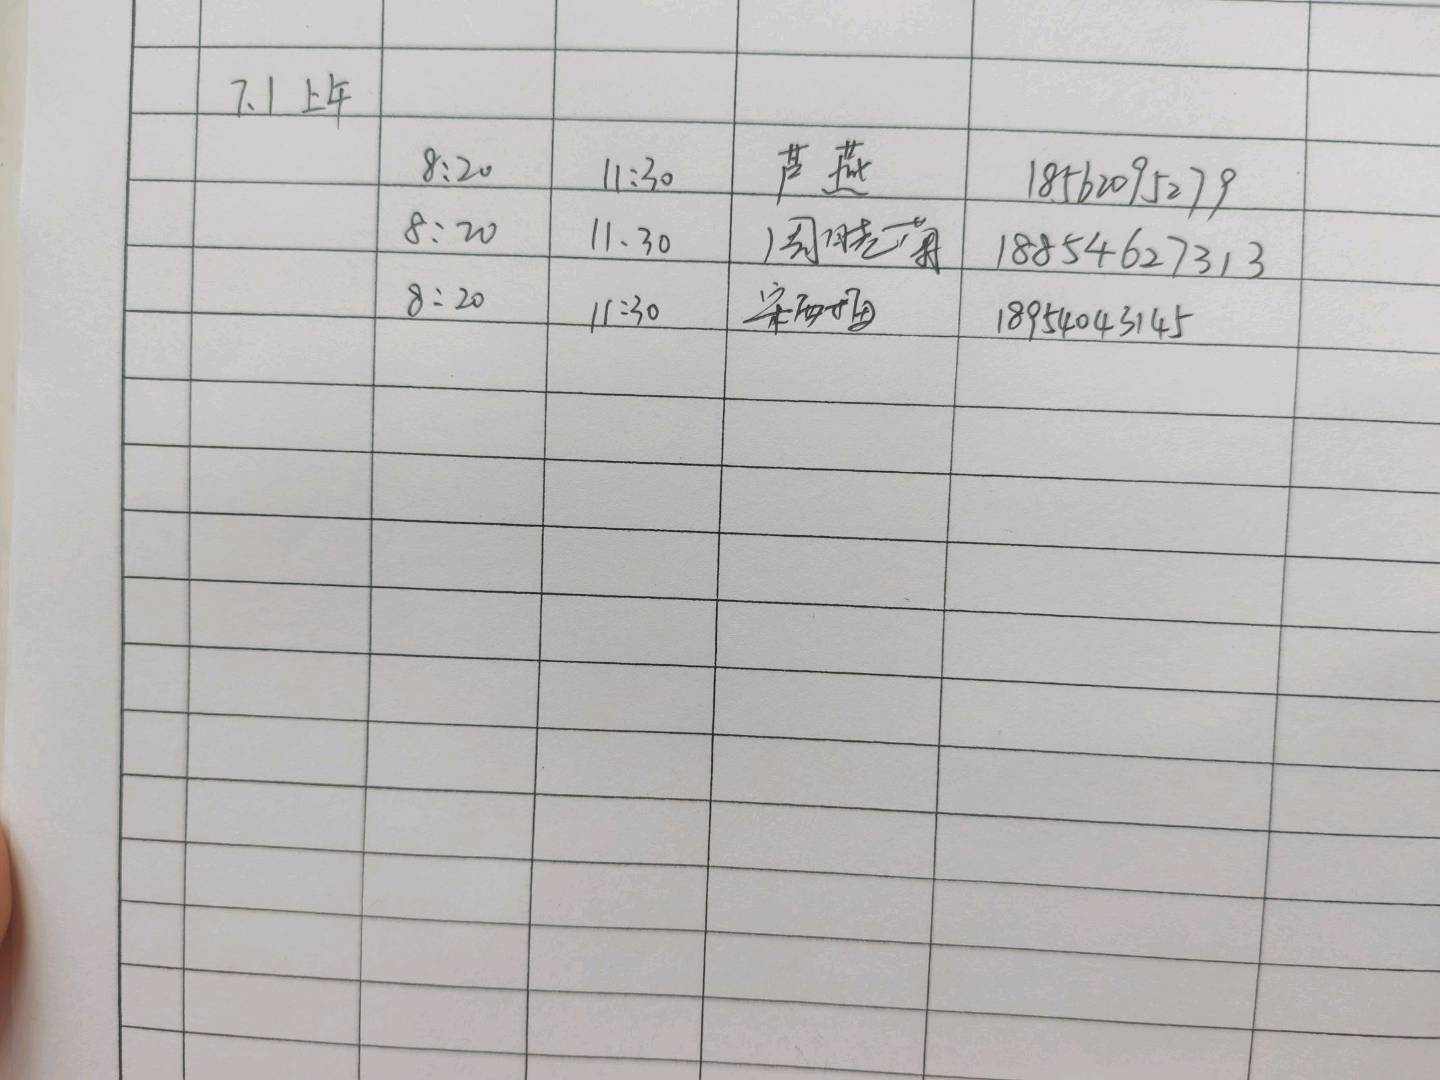 7.1 上午
8:20 11:30 芦燕 18562095279
8:20 11.30 周晓菊 18854627313
8:20 11:30 18954043145